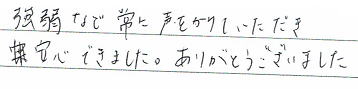 強弱など常に声をかけていただき
安心できました。ありがとうございました